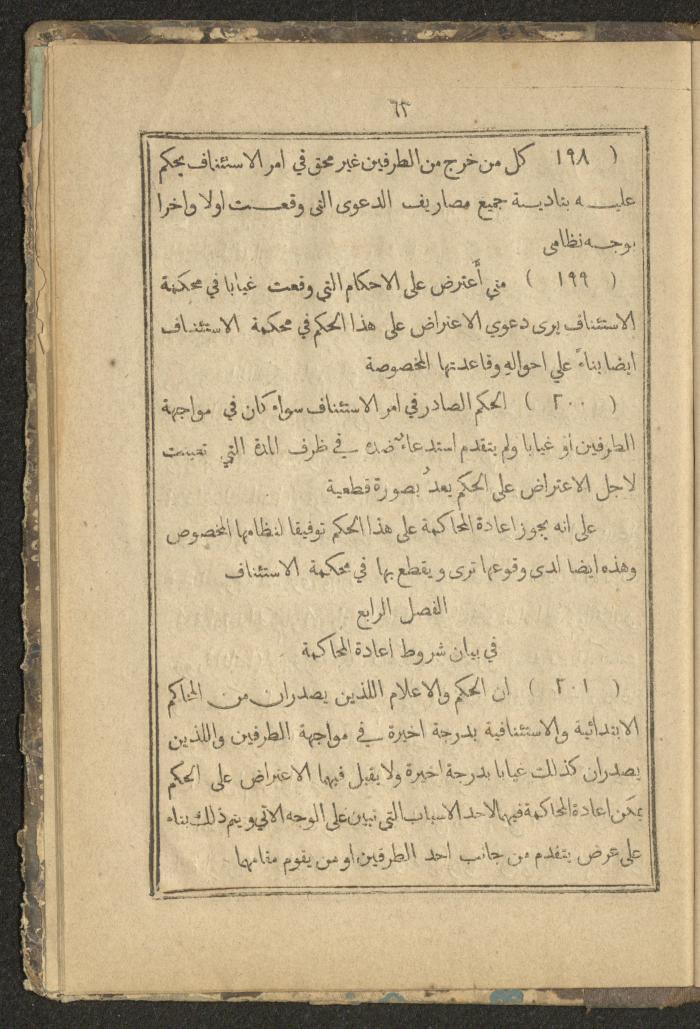 ٦٣
( ١٩٨ كل من خرج من الطرفين غير محق في امر الاستئناف يحكم
عليه بتادية جميع مصاريف الدعوى التى وقعت اولا واخرا
بوجه نظامى
( ١٩٩ ) متي أعترض على الاحكام التي وقعت غيابا في محكمة
الاستئناف يرى دعوي الاعتراض على هذا الحكم في محكمة الاستئناف
ايضا بناءً علي احواله وقاعدتها المخصوصة
( ٢٠٠ ) الحكم الصادر في امر الاستئناف سواء كان في مواجهة
الطرفين او غيابا ولم يتقدم استدعاء ضده في ظرف المدة التي تعينت
لاجل الاعتراض على الحكم يعدُ بصورة قطعية
على انه يجوز اعادة المحاكمة على هذا الحكم توفيقا لنظامها المخصوص
وهذه ايضا لدى وقوعها ترى ويقطع بها في محكمة الاستئناف
الفصل الرابع
في بيان شروط اعادة المحاكمة
( ٢٠١ ) ان الحكم والاعلام اللذين يصدران من المحاكم
الابتدائية والاستئنافية بدرجة اخيرة في مواجهة الطرفين واللذين
يصدران كذلك غيابا بدرجة اخيرة ولا يقبل فيهما الاعتراض على الحكم
يمكن اعادة المحاكمة فيهما لاحد الاسباب التي تبين على الوجه الاتي ويتم ذلك بناء
على عرض يتقدم من جانب احد الطرفين او من يقوم مقامهما